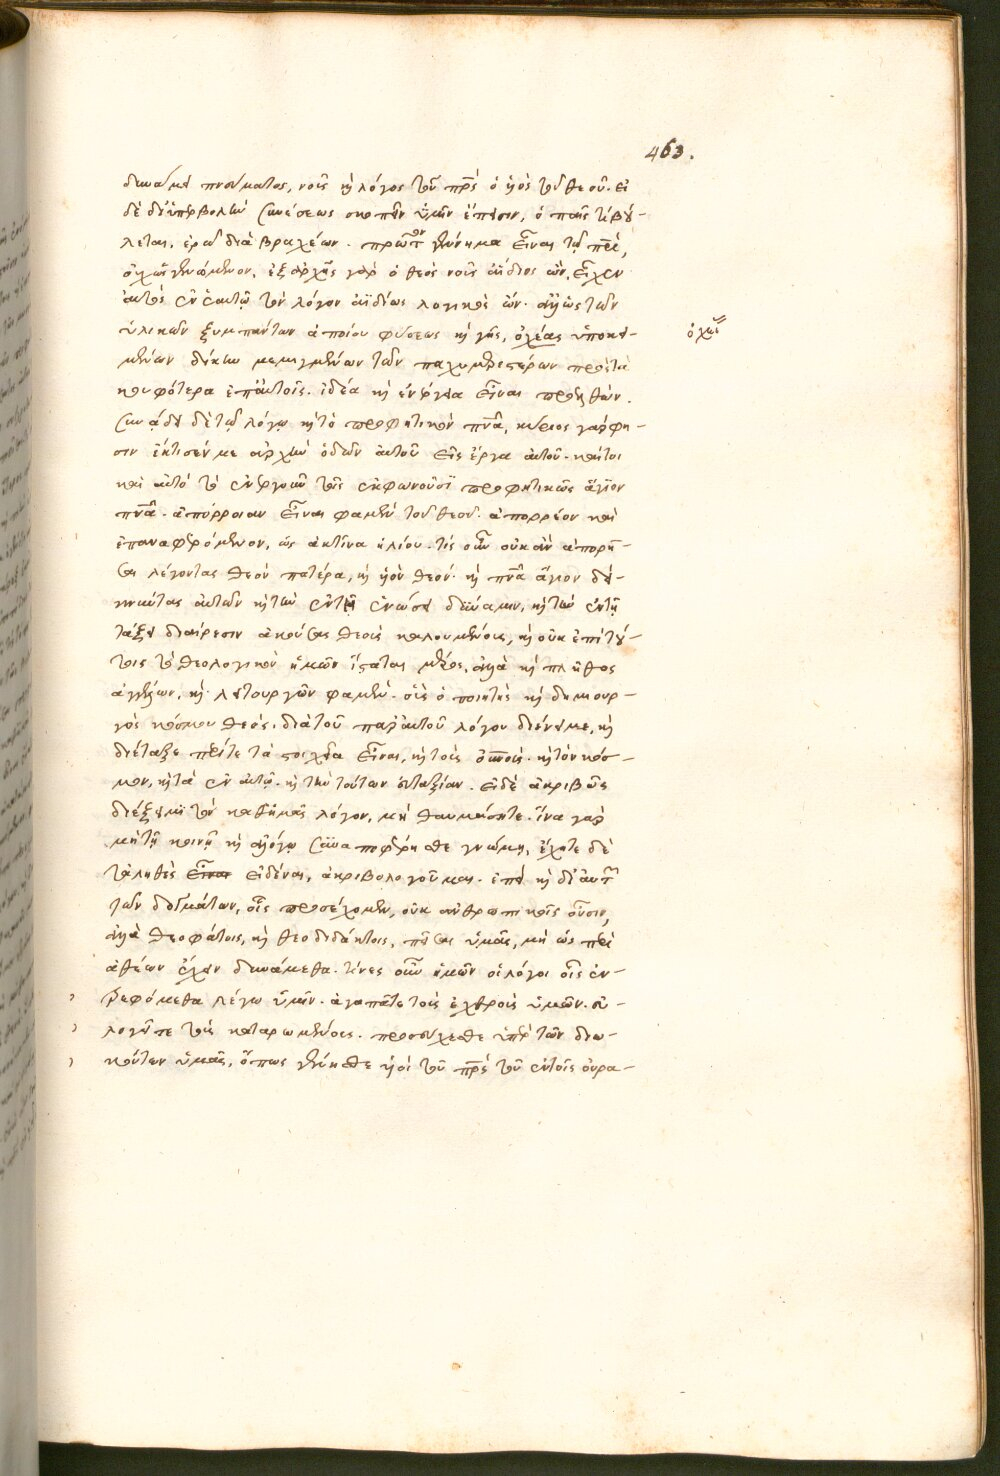 463.
δυνάμει πνεύματος, νοῦς κὴ λόγος τοῦ πρς ὁ ὑὸς τοῦ θεοῦ. εἰ
δὲ δι' ὑπερβολὴν συνέσεως σκοπεῖν ὑμῖν ἔπεισιν, ὁ παῖς τί βού-
λεται, ἐρῶ διὰ βραχέων. πρῶτον γέννημα εἶναι τῷ πρί,
οὐχ ὡς γενόμενον, ἐξ ἀρχῆς γὰρ ὁ θεὸς νοῦς ἀΐδιος ὢν, εἶχεν
αὐτὸς ἐν ἑαυτῷ τὸν λόγον ἀϊδίως λογικὸς ὤν. ἀλλ' ὡς τῶν
ὑλικῶν ξυμπάντων ἀποίου φύσεως κὴ γῆς, ὀχείας ὑποκει-
μένων δίκην μεμιγμένων τῶν παχυμερεστέρων πρὸς τὰ
κουφότερα ἐπ' αὐτοῖς. ἰδέα κὴ ἐνέργεια εἶναι προελθών.
συνᾴδει δὲ τῷ λόγῳ κὴ τὸ προφητικὸν πνα, κύριος γάρ φη-
σιν ἔκτισέν με ἀρχὴν ὁδῶν αὐτοῦ εἰς ἔργα αὐτοῦ. καίτοι
καὶ αὐτὸ τὸ ἐνεργοῦν τοῖς ἐκφωνοῦσι προφητικῶς ἅγιον
πνα. ἀπόρροιαν εἶναι φαμὲν τοῦ θεοῦ. ἀπορρέον καὶ
ἐπαναφερόμενον, ὡς ἀκτῖνα ἡλίου. τίς οὖν οὐκ ἂν ἀπορή-
σαι λέγοντας θεὸν πατέρα, κὴ ὑὸν θεὸν. κὴ πνα ἅγιον δει-
κνύντας αὐτῶν κὴ τὴν ἐν τῇ ἑνώσει δύναμιν, κὴ τὴν ἐν τῇ
τάξει διαίρεσιν ἀκούσας θεοὺς καλουμένους, κὴ οὐκ ἐπὶ τού-
τοις τὸ θεολογικὸν ἡμῶν ἵσταται μέρος, ἀλλὰ κὴ πλῆθος
ἀγγέλων, κὴ λειτουργῶν φαμὲν. οὓς ὁ ποιητὴς κὴ δημιουρ-
γὸς κόσμου θεὸς. διὰ τοῦ παρ' αὐτοῦ λόγου διένειμε, κὴ
διέταξε περί τε τὰ στοιχεῖα εἶναι, κὴ τοὺς οὐνοὺς. κὴ τὸν κόσ-
μον, κὴ τὰ ἐν αὐτῷ. κὴ τὴν τούτων εὐταξίαν. εἰ δὲ ἀκριβῶς
διέξειμι τὸν καθ' ἡμᾶς λόγον, μὴ θαυμάσητε. ἵνα γὰρ
μὴ τῇ κοινῇ κὴ ἀλόγῳ συναποφέρησθε γνώμῃ, ἔχητε δὲ
τἀληθὲς εἶναι εἰδέναι, ἀκριβολογοῦμαι. ἐπεὶ κὴ δι' αὐτ
τῶν δογμάτων, οἷς προσέχομεν, οὐκ ἀνθρωπικοῖς οὖσιν,
ἀλλὰ θεοφάτοις, κὴ θεοδιδάκτοις, πεῖσαι ὑμᾶς, μὴ ὡς περὶ
ἀθέων ἔχειν δυνάμεθα. τίνες οὖν ἡμῶν οἱ λόγοι οἷς ἐν-
τρεφόμεθα λέγω ὑμῖν. ἀγαπᾶτε τοὺς ἐχθροὺς ὑμῶν. εὐ-
λογεῖτε τοὺς καταρωμένους. προσεύχεσθε ὑπὲρ τῶν διω-
κόντων ὑμᾶς, ὅπως γένησθε ὑοὶ τοῦ πρς τοῦ ἐν τοῖς οὐρα-